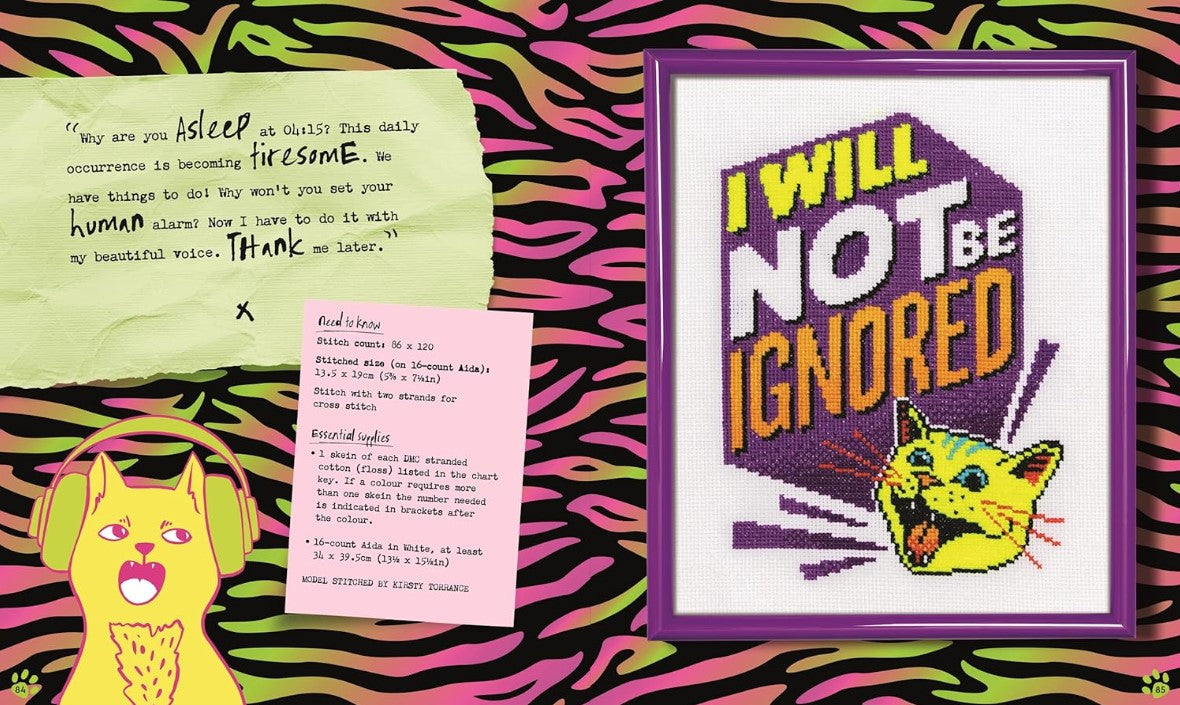 “Why are you Asleep at 04:15? This daily
occurrence is becoming tiresome. We
have things to do! Why won't you set your
human alarm? Now I have to do it with
my beautiful voice. THank me later.”
x
Need to know
Stitch count: 86 x 120
Stitched size (on 16-count Aida):
13.5 x 19cm (5⅜ x 7½in)
Stitch with two strands for
cross stitch
Essential supplies
• 1 skein of each DMC stranded
cotton (floss) listed in the chart
key. If a colour requires more
than one skein the number needed
is indicated in brackets after
the colour.
• 16-count Aida in White, at least
34 x 39.5cm (13½ x 15½in)
MODEL STITCHED BY KIRSTY TORRANCE
84
I WILL
NOT BE
IGNORED
85